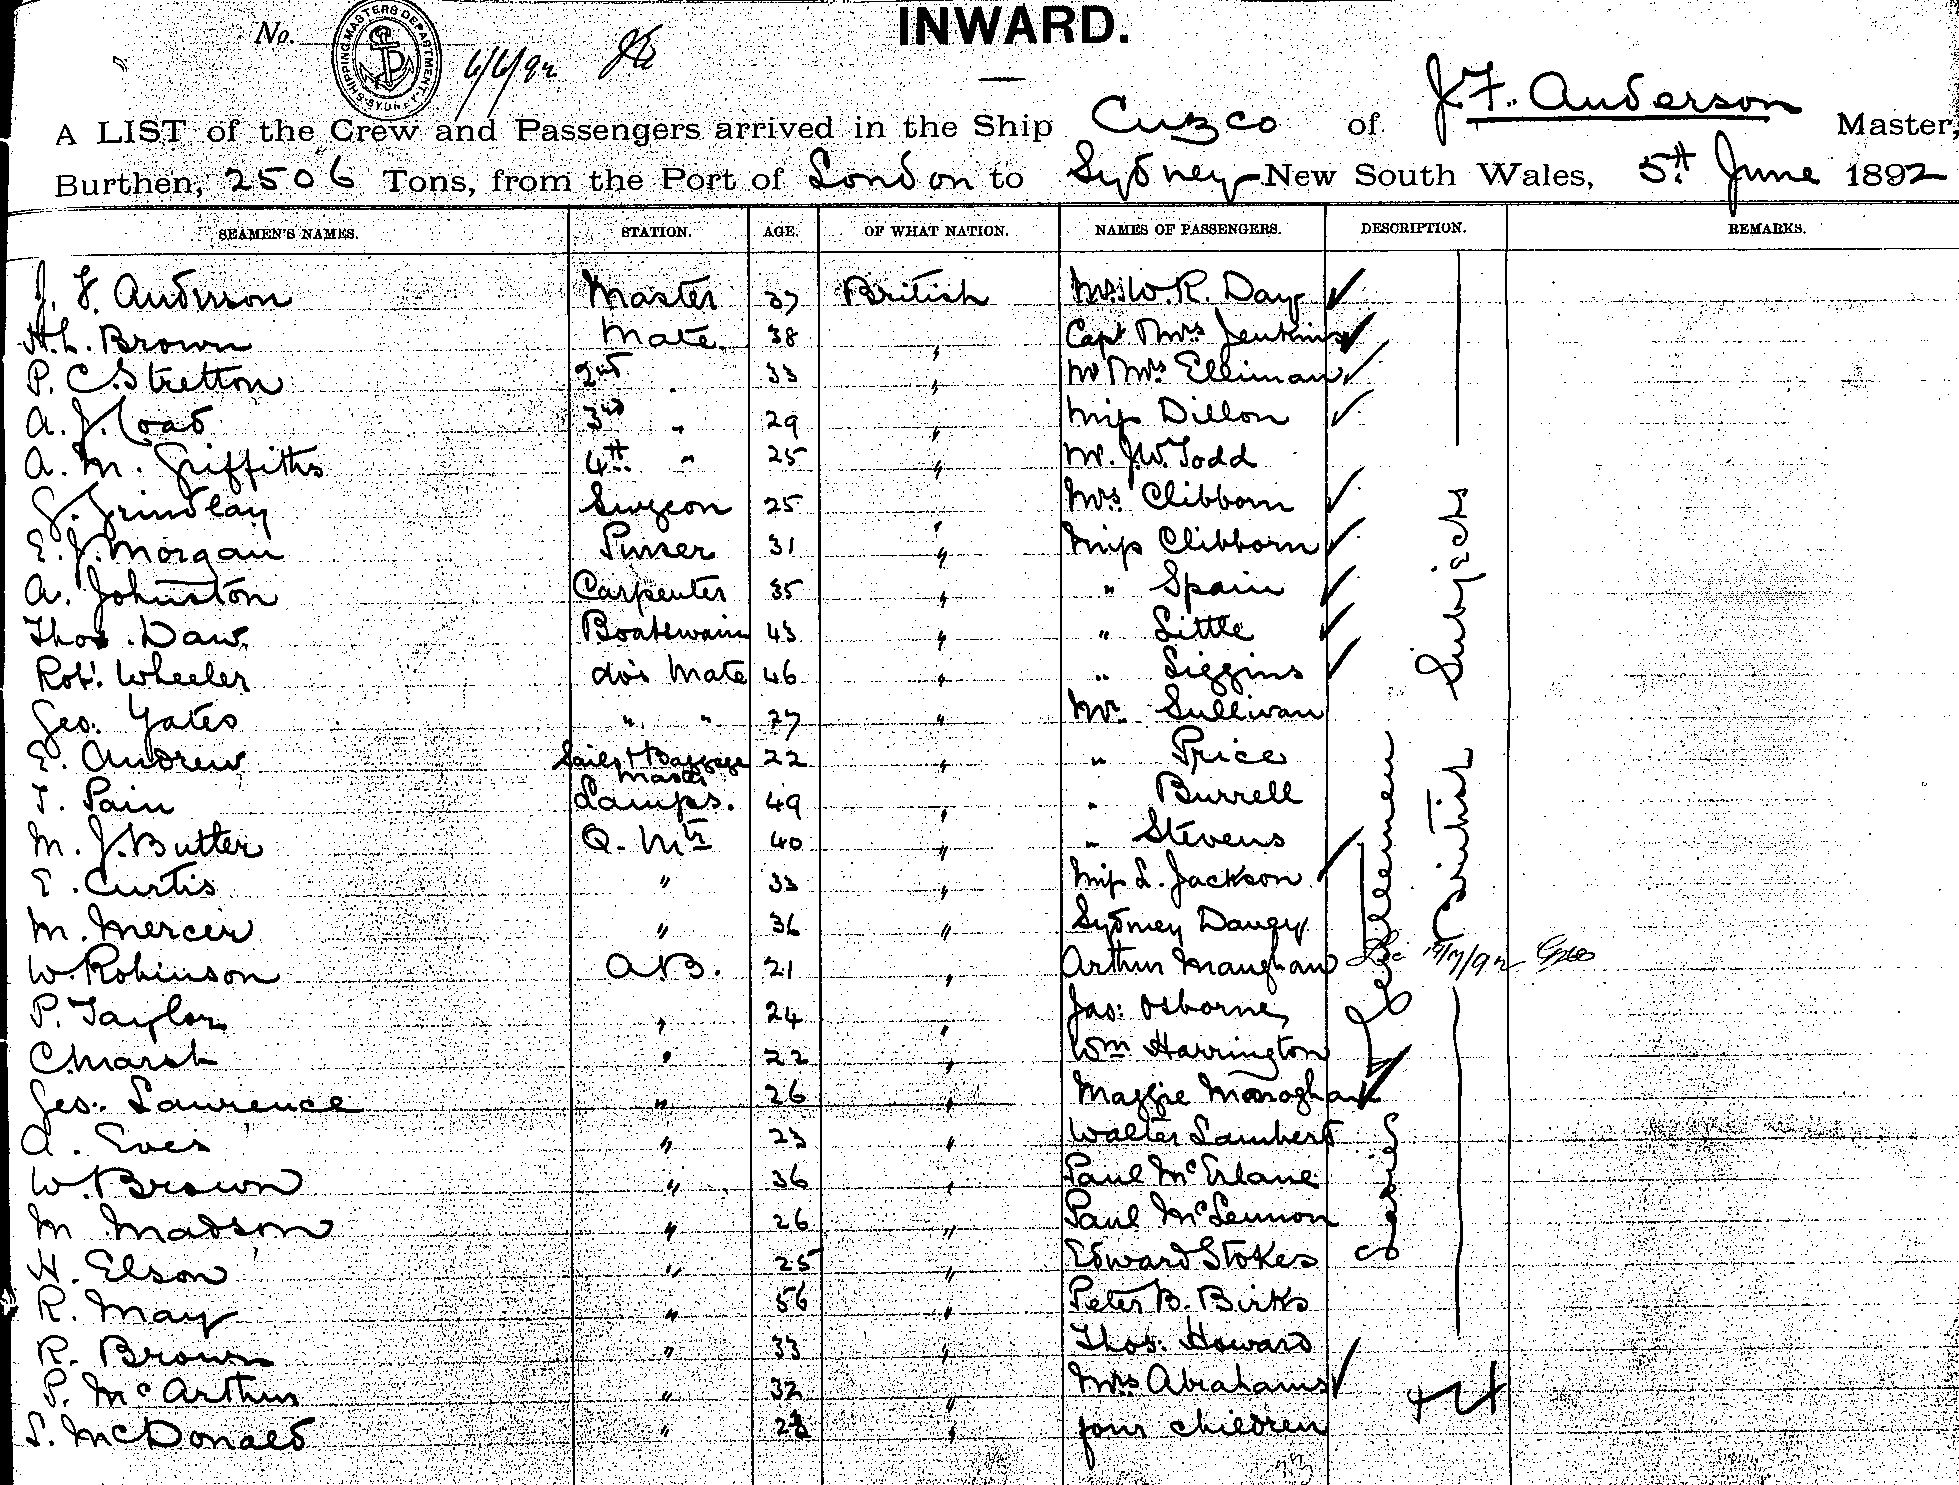 INWARD.
No. 6/6/92
SHIPPING MASTERS DEPARTMENT SYDNEY
A LIST of the Crew and Passengers arrived in the Ship Cuzco of J. F. Anderson Master,
Burthen, 2506 Tons, from the Port of London to Sydney New South Wales, 5th June 1892
SEAMEN'S NAMES. STATION. AGE. OF WHAT NATION. NAMES OF PASSENGERS. DESCRIPTION. REMARKS.
J. F. Anderson Master 37 British Mrs W. R. Day ✓
H. L. Brown Mate. 38 " Capt & Mrs Jenkins ✓
P. C. Stretton 2nd " 33 " Mr & Mrs Elliman ✓
A. J. Coad 3rd " 29 " Miss Dillon ✓
A. M. Griffiths 4th " 25 " Mr. J. W. Todd
G. Grindlay Surgeon 25 " Mrs Clibborn ✓
E. J. Morgan Purser 31 " Miss Clibborn ✓
A. Johnston Carpenter 35 " " Spain ✓
Thos. Daw. Boatswain 43 " " Little ✓
Robt. Wheeler do's Mate 46 " " Siggins ✓
Geo. Yates " " 27 " Mr. Sullivan
E. Andrew Sails & Baggage Master 22 " " Price
T. Pain Lamps. 49 " " Burrell
M. J. Butler Q. Mr 40 " " Stevens
E. Curtis " 33 " Miss L. Jackson ✓
M. Mercer " 36 " Sydney Dangy
W. Robinson A.B. 21 " Arthur Maughan
P. Taylor " 24 " Jas: Osborne
C. Marsh " 22 " Wm Harrington
Geo. Lawrence " 26 " Maggie Monaghan ✓
A. Eves " 23 " Walter Lambert
W. Brown " 36 " Paul McErlane
M Madson " 26 " Paul McLennon
H. Elson " 25 " Edward Stokes
R. May " 56 " Peter B. Birks
R. Brown " 33 " Thos. Howard
P. McArthur " 32 " Mrs Abrahams ✓
S. McDonald " 28 " four children
Ladies & Gentlemen
British Subjects